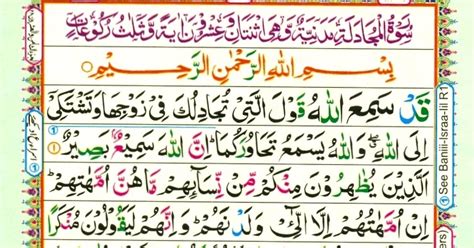 سُوْرَةُ الْمُجَادَلَةِ مَدَنِيَّةٌ وَّهِيَ اثْنَتَانِ وَعِشْرُوْنَ اٰيَةً وَّثَلٰثُ رُكُوْعَاتٍ
بِسْمِ اللّٰهِ الرَّحْمٰنِ الرَّحِيْمِ
قَدْ سَمِعَ اللّٰهُ قَوْلَ الَّتِيْ تُجَادِلُكَ فِيْ زَوْجِهَا وَتَشْتَكِيْٓ
اِلَى اللّٰهِ ۖ وَاللّٰهُ يَسْمَعُ تَحَاوُرَكُمَا ؕ اِنَّ اللّٰهَ سَمِيْعٌۢ بَصِيْرٌ ۝۱
اَلَّذِيْنَ يُظٰهِرُوْنَ مِنْكُمْ مِّنْ نِّسَآئِهِمْ مَّا هُنَّ اُمَّهٰتِهِمْ ؕ
اِنْ اُمَّهٰتُهُمْ اِلَّا الّٰٓـِٔيْ وَلَدْنَهُمْ ؕ وَاِنَّهُمْ لَيَقُوْلُوْنَ مُنْكَرًا
See Baniii-Israa-iil R1